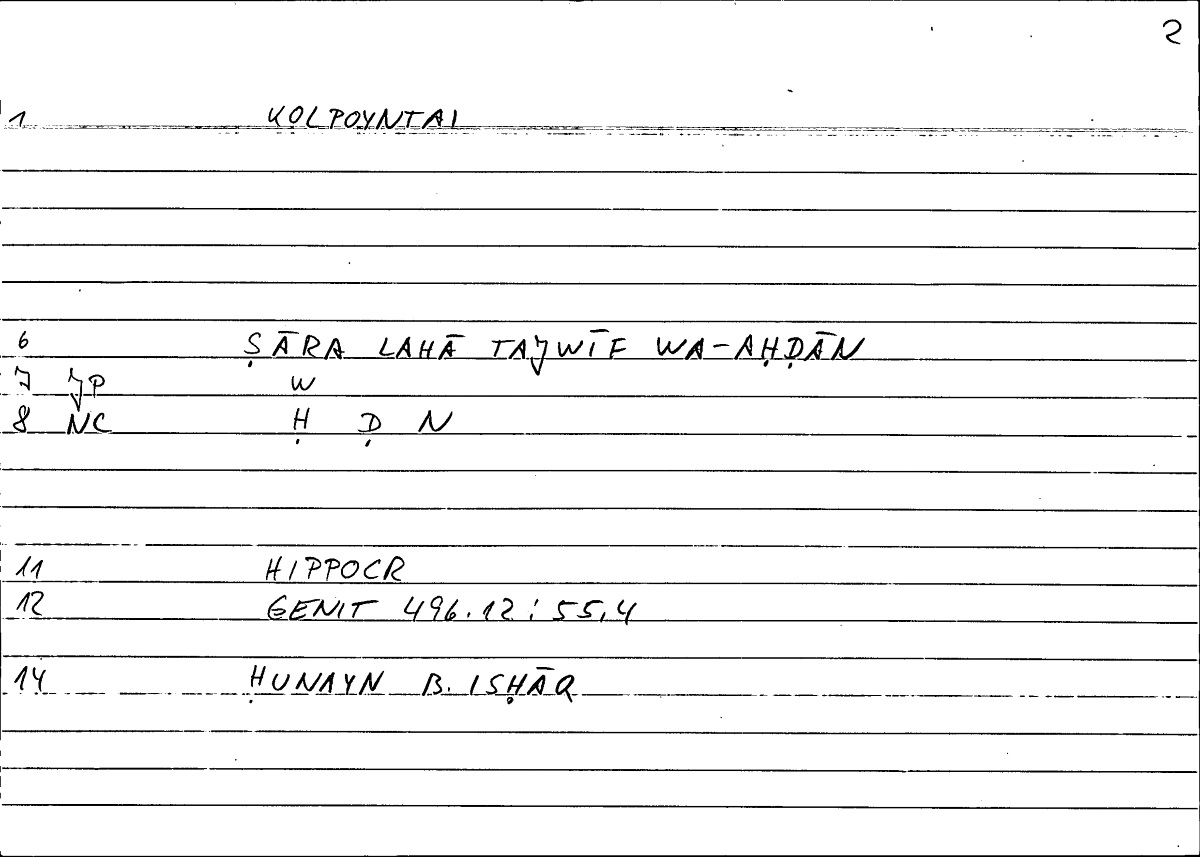 2
1 KOLPOYNTAI
6 ṢĀRA LAHĀ TAJWĪF WA-AḤḌĀN
7 JP W
8 NC Ḥ Ḍ N
11 HIPPOCR
12 GENIT 496.12; 55,4
14 ḤUNAYN B. ISḤĀQ